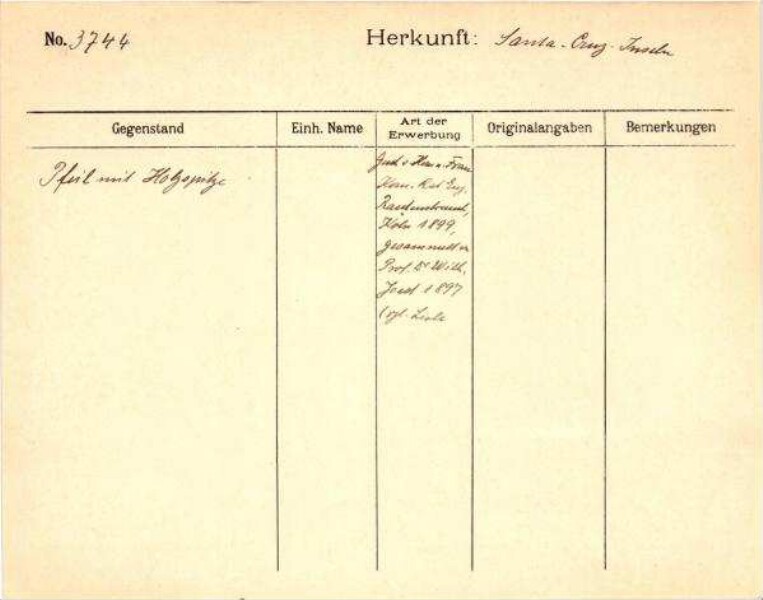 No. 3744
Herkunft: Santa-Cruz-Inseln
Gegenstand
Einh. Name
Art der
Erwerbung
Originalangaben
Bemerkungen
Pfeil mit Holzspitze
Frau
Eug.
Rautenstrauch,
Köln 1899,
gesammelt v.
Prof. Dr Wilh.
Joest 1897
(vgl. Liste